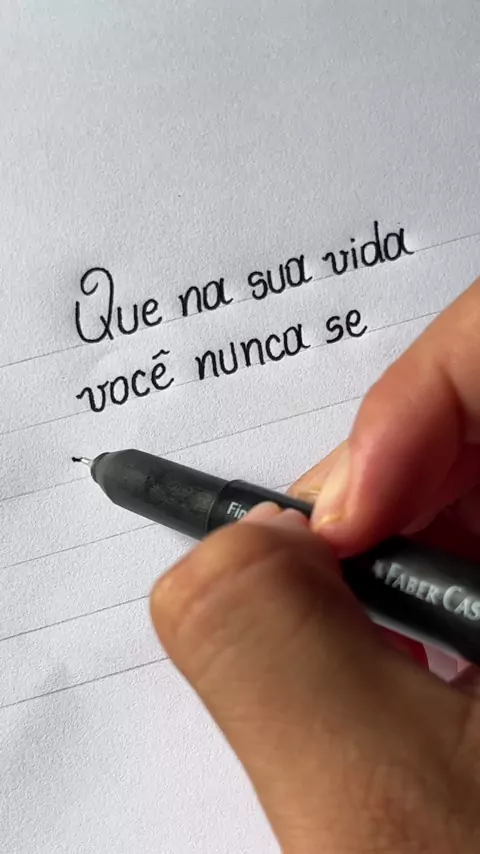 Que na sua vida
você nunca se
Fin
FABER CAS